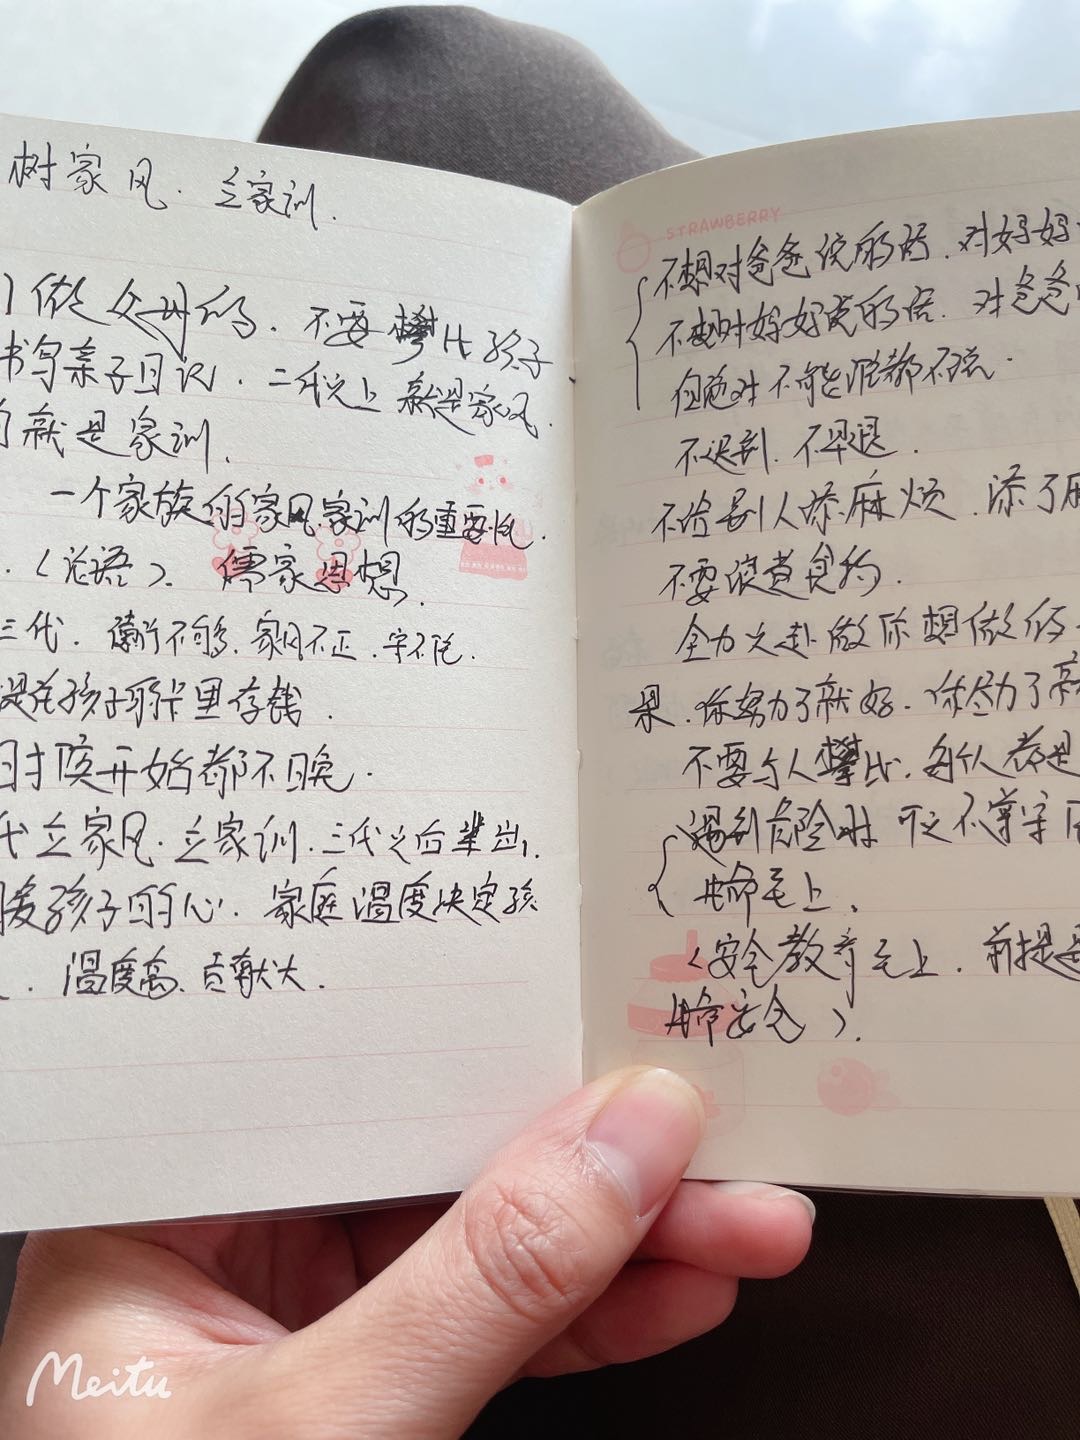 树家风. 立家训.
做父母的. 不要攀比孩子
书写亲子日记. 二代之上就是家风.
就是家训.
一个家族的家风家训的重要性.
《论语》、儒家思想.
三代. 德行不够. 家风不正. 守不住.
是在孩子那卡里存钱.
时候开始都不晚.
代立家风. 立家训. 三代之后辈出.
暖孩子的心. 家庭温度决定孩
温度高. 贡献大.
STRAWBERRY
不想对爸爸说的话. 对妈妈
不想对妈妈说的话. 对爸爸
但绝对不可能谁都不说.
不迟到. 不早退.
不给别人添麻烦. 添了麻
不要浪费食物.
全力以赴做你想做的
果. 你努力了就好. 你尽力了就
不要与人攀比. 每个人都是
遇到危险时 可以不遵守
生命至上.
(安全教育至上. 前提是
生命安全).
Meitu